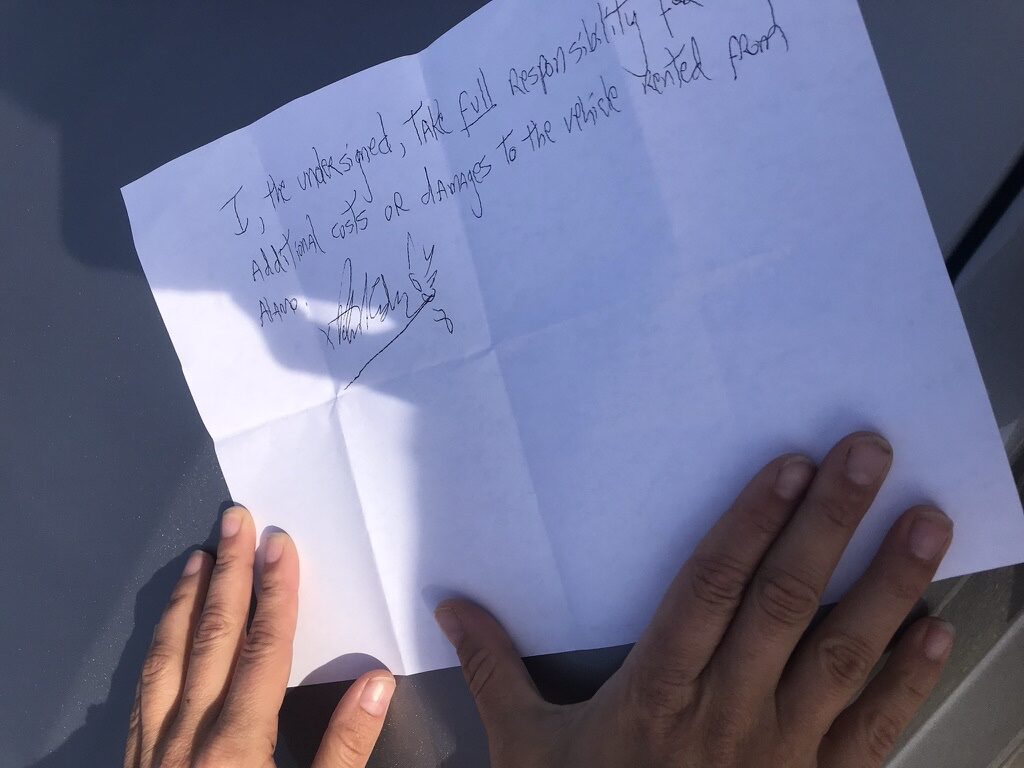 I, the undersigned, TAKE full RESPONSIBILITY FOR
ADDITIONAL COSTS OR DAMAGES TO the vehicle Rented from
ALAMO.
x